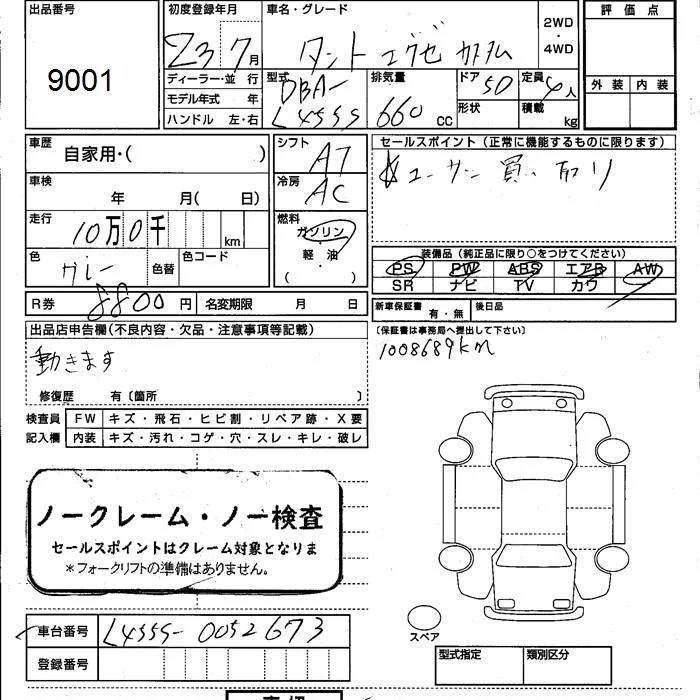 出品番号
9001
初度登録年月
23 7月
ディーラー・並 行
モデル年式 年
ハンドル 左・右
車名・グレード
タント エグゼ カスタム
2WD
・
4WD
型式
DBA-
L455S
排気量
660 CC
ドア 5D
形状
定員 4人
積載 kg
評価点
外装 内装
車歴
自家用・( )
シフト
AT
車検
年 月( 日)
冷房
AC
走行
10万0千 km
燃料
ガソリン
・
軽・油
( )
色
グレー
色替
色コード
R券 8800円 名変期限 月 日
セールスポイント (正常に機能するものに限ります)
☆ユーザー買い取り
装備品 (純正品に限り○をつけてください)
PS PW ABS エアB AW
SR ナビ TV カワ
新車保証書 有・無 後日品
(保証書は事務局へ提出して下さい)
1008689km
出品店申告欄 (不良内容・欠品・注意事項等記載)
動きます
修復歴 有〔箇所 〕
検査員
記入欄
FW キズ・飛石・ヒビ割・リペア跡・X要
内装 キズ・汚れ・コゲ・穴・スレ・キレ・破レ
ノークレーム・ノー検査
セールスポイントはクレーム対象となりま
*フォークリフトの準備はありません。
車台番号 L455S-0052673
登録番号
スペア
型式指定 類別区分